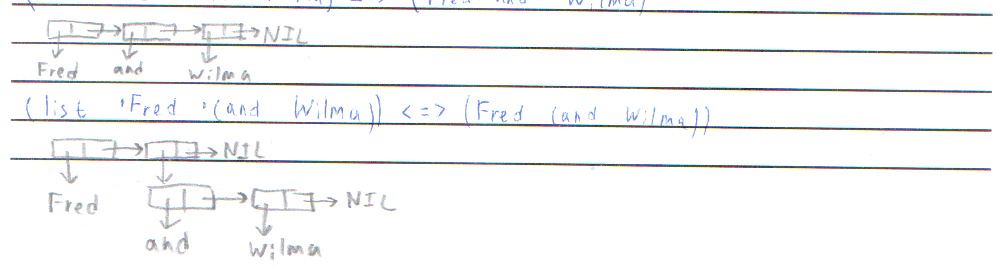 => (Fred and Wilma)
NIL
Fred and Wilma
(list 'Fred '(and Wilma)) <=> (Fred (and Wilma))
NIL
Fred NIL
and Wilma